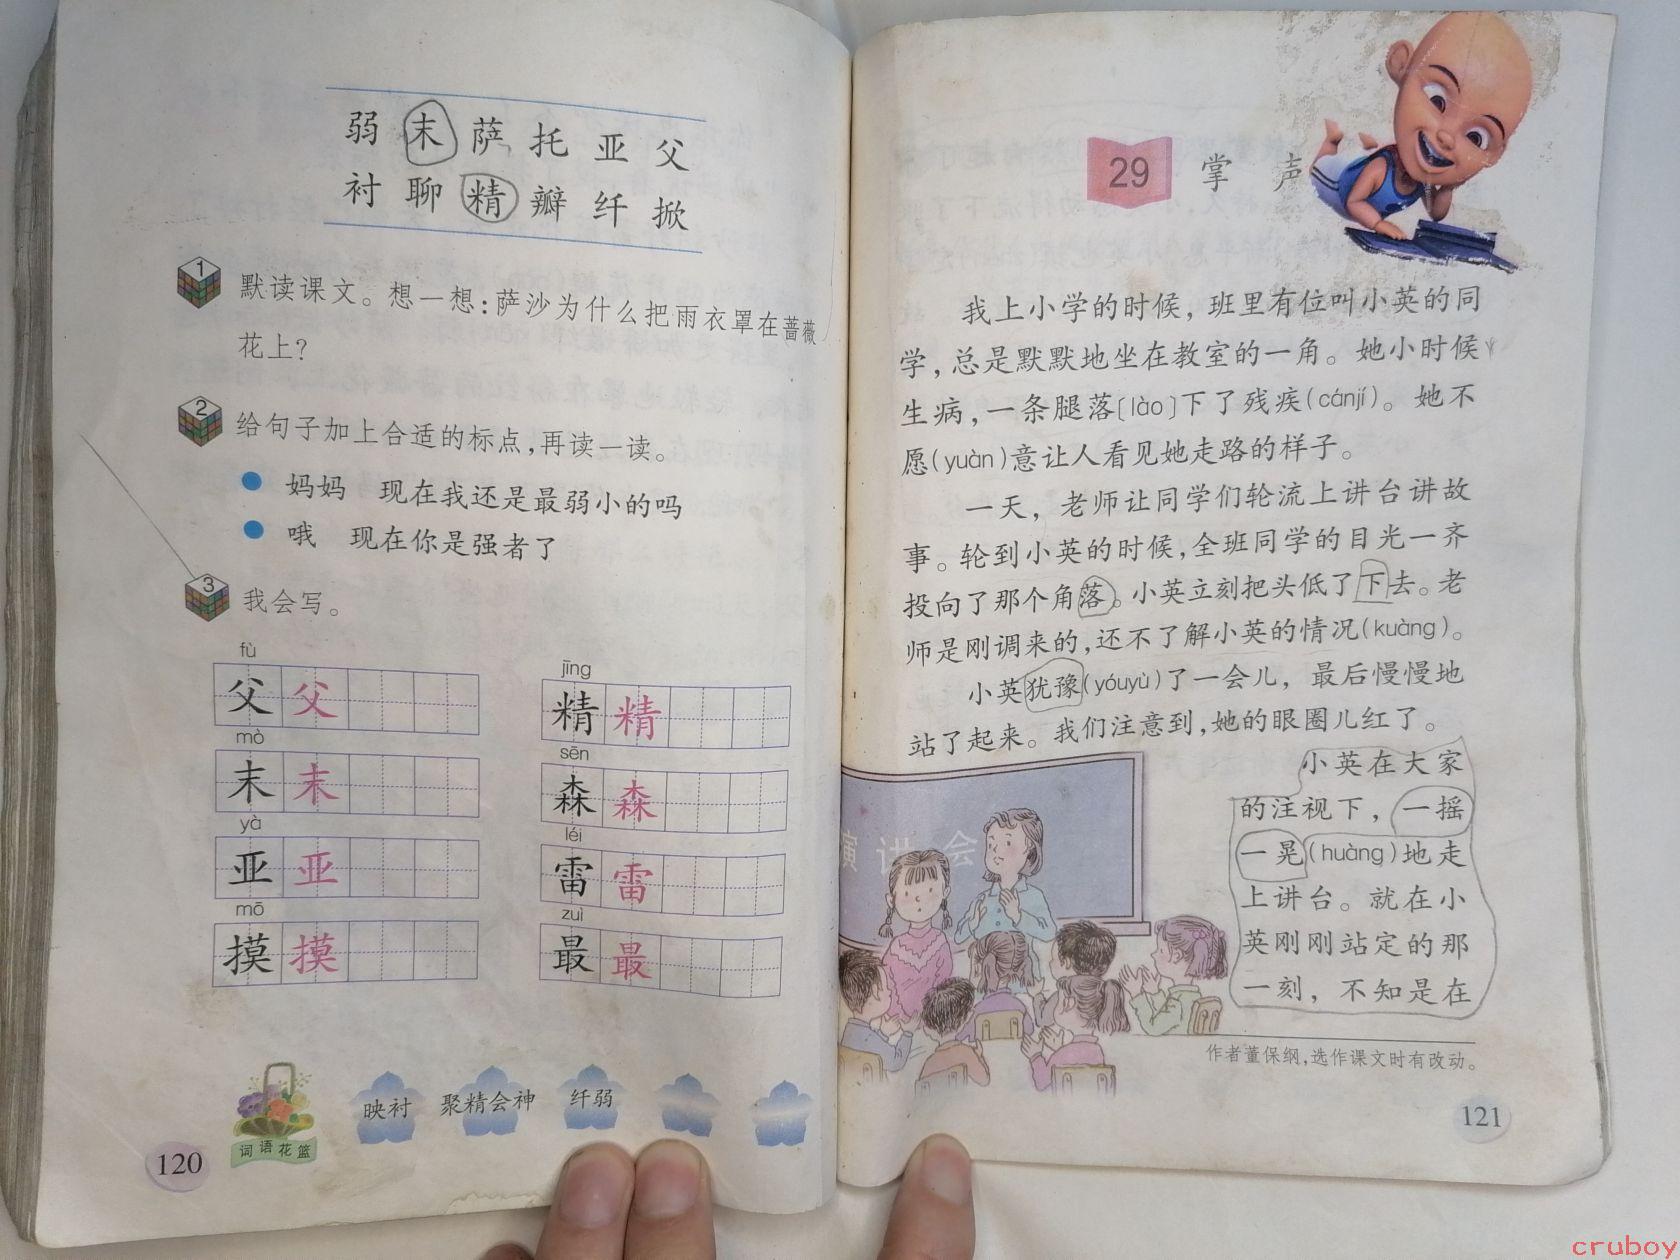 弱 末 萨 托 亚 父
衬 聊 精 瓣 纤 掀
1 默读课文。想一想：萨沙为什么把雨衣罩在蔷薇
花上？
2 给句子加上合适的标点，再读一读。
妈妈 现在我还是最弱小的吗
哦 现在你是强者了
3 我会写。
fù
父 父
mò
末 末
yà
亚 亚
mō
摸 摸
jīng
精 精
sēn
森 森
léi
雷 雷
zuì
最 最
词语花篮 映衬 聚精会神 纤弱
120
29 掌 声
我上小学的时候，班里有位叫小英的同
学，总是默默地坐在教室的一角。她小时候
生病，一条腿落〔lào〕下了残疾(cánjí)。她不
愿(yuàn)意让人看见她走路的样子。
一天，老师让同学们轮流上讲台讲故
事。轮到小英的时候，全班同学的目光一齐
投向了那个角落。小英立刻把头低了下去。老
师是刚调来的，还不了解小英的情况(kuàng)。
小英犹豫(yóuyù)了一会儿，最后慢慢地
站了起来。我们注意到，她的眼圈儿红了。
小英在大家
的注视下，一摇
一晃(huàng)地走
上讲台。就在小
英刚刚站定的那
一刻，不知是在
演讲会
作者董保纲，选作课文时有改动。
121
cruboy